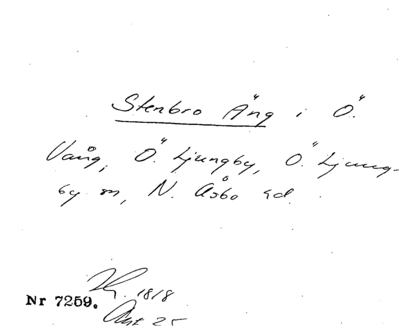 Stenbro Äng i Ö.
Vång, Ö. Ljungby, Ö. Ljung-
by sn, N. Åsbo hd.
1818
Nr 7259.
Akt 25